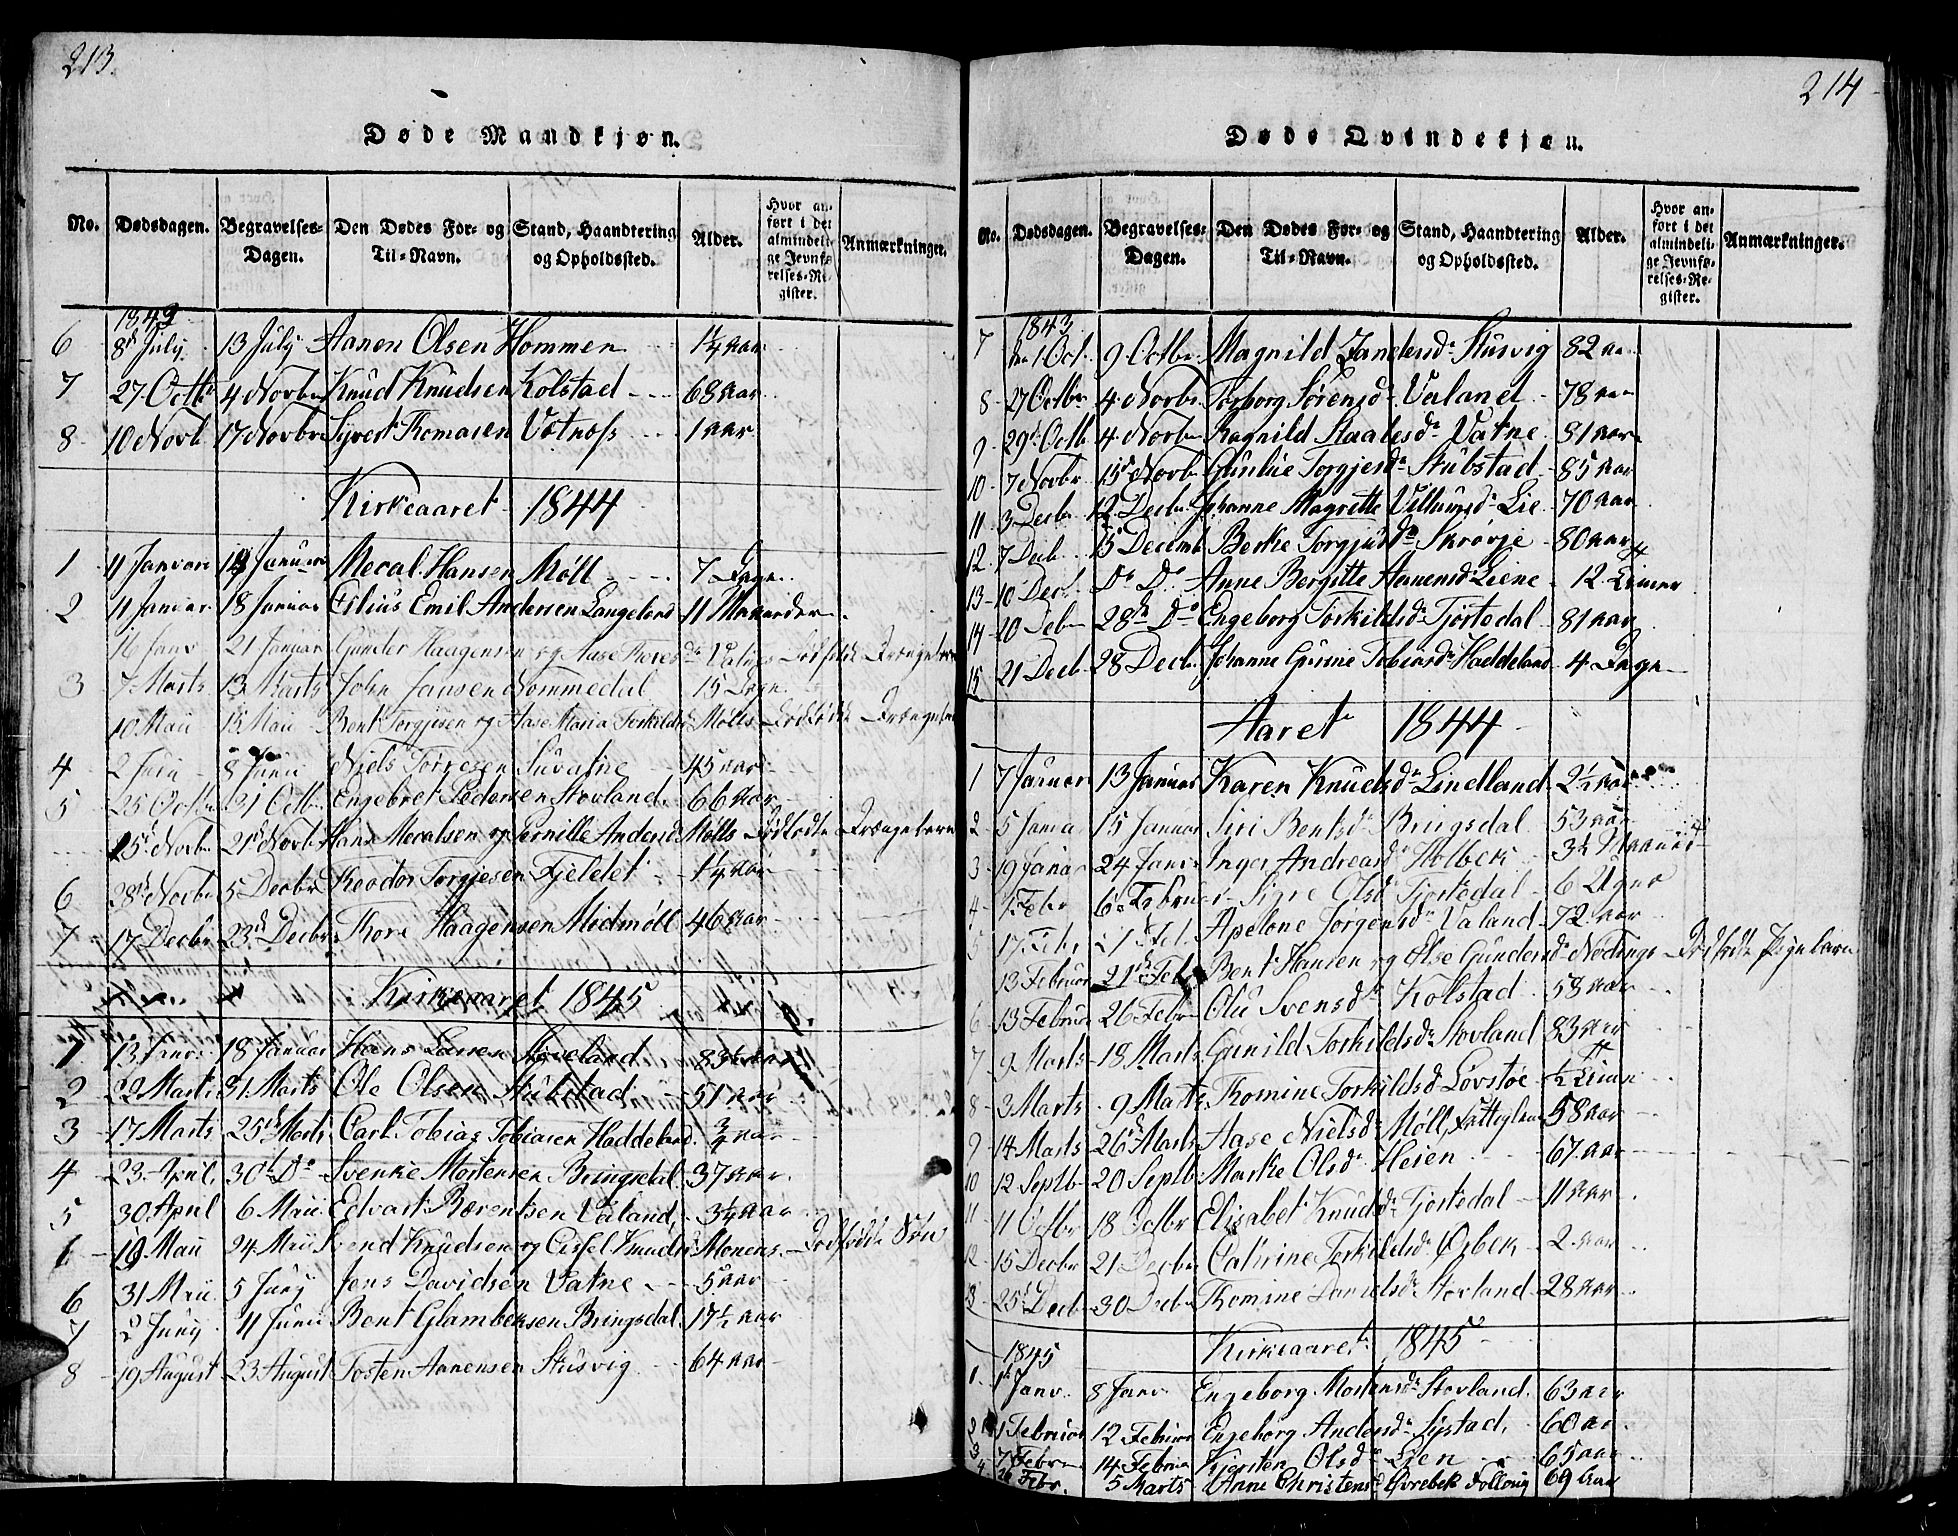 213.
Døde Mandkjøn.
No. Dødsdagen. Begravelses-Dagen. Den Dødes For- og Til-Navn. Stand, Haandtering og Opholdssted. Alder. Hvor anført i det almindelige Jevnførelses-Register. Anmærkninger.
1843
6 8d July 13 July Aanen Olsen Hommen 1/4 aar
7 27 Octb 4 Novbr Knud Knudsen Kolstad 68 aar
8 10 Novb 17 Novbr Syvert Tomasen Vatne 1 aar
Kirkeaaret 1844
1 11 Januari Januar Mecal Hansen Møll 7 Dage
2 11 Januar 18 Januar Emil Andersen Langeland 11 Maaneder
16 Janv 21 Januar Gunder Haagensen og Aase Dødfødt Drængebarn
3 7 Marts 13 Marts John Jansen Hommedal 15 Dage
10 Maii Maii Bent Torgjusen og Aase Maria Torkildsd Mølls Dødfødt Drængebarn
4 2 Juni 8 Juni Niels Torresen 45 aar
5 25 Octbr 31 Octbr Engebret Pedersen Stovland 66 aar
15d Novbr 21d Novbr Hans Mecalsen og Pernille Andersd Mølls Dødfødte Drængebarn
6 28d Novbr 5 Decbr Teodor Torgjesen Fjeldet 1/4 aar
7 17 Decbr 23d Decbr Tore Haagensen Midmøll 46 aar
Kirkeaaret 1845
1 13 Janv 18 Januar Hans Larsen 83 aar
2 22 Marts 31 Marts Ole Olsen Stubstad 51 aar
3 17 Marts 25d Marts Carl Tobias Tobiasen Haddeland 3/4 aar
4 23 April 30d Do Svenke Mortensen Bringsdal 37 aar
5 30 April 6 Maii Edvart Bærentsen Valand 3 1/4 aar
6 19 Maii 24 Maii Svend Knudsen og Cissel Knudsd Monens Dødfødte Søn
6 31 Maii 5 Juny Jens Davidsen Vatne 5 aar
7 2 Juny 11 Junii Bent Glambeksen Bringsdal 17 1/2 aar
8 19 August 23 August Tosten Aanensen Stusvig 64 aar
214
Døde Qvindekjøn.
No. Dødsdagen. Begravelses-Dagen. Den Dødes For- og Til-Navn. Stand, Haandtering og Opholdssted. Alder. Hvor anført i det almindelige Jevnførelses-Register. Anmærkninger.
1843
7 1 Oct. 9 Octbr Magnild Stusvig 82 aar
8 27 Octbr 4 Novbr Torborg Sørensd Valand 78 aar
9 29d Octb 4 Novbr Ragnild Staalesd Vatne 81 aar
10 7 Novbr 15d Novb Gunlue Torgjersd Stubstad 85 aar
11 3 Decbr 12 Decbr Johanne Magrette Villumsd Lie 70 aar
12 7 Decb 15 Decemb Berte Torgjusd Skrøvje 80 aar
13 10 Decb Do Do Anne Bergitte Aanensd Liene 12 Timer
14 20 Decbr 28d Do Engeborg Torkildsd Tjortedal 81 aar
15 21 Decb 28 Decb Johanne Gurine Tobiasd Haddeland 4 Dage
Aaret 1844
1 7 Januar 13 Januar Karen Knudsd Lindland 2 1/2 aar
2 5 Janua 15 Januar Siri Bentsd Bringsdal 53 aar
3 19 Janua 24 Janv Inger Andreasd Holbek 3 1/2
4 1 Febr 6 Februar Sigre Olsd Tjortedal 6 Uger
5 17 Febr Feb. Apelone Jorgensd Valand 72 aar
13 Februar 21d Febr Bent Hansen og Else Gundersd Nødings Dødfødte Pigebarn
6 13 Februar 26 Febr Olu Svensd Kolstad 58 aar
7 9 Marts 18 Marts Gunild Torkildsd Stovland 83 aar
8 3 Marts 9 Marts Tomine Torkildsd Lovstøe 1/2 Time
9 14 Marts 26d Marts Aase Nielsd Møll, Fattiglem 58 aar
10 12 Septb 20 Septb Marte Olsd Heien 67 aar
11 11 Octbr 18 Octbr Elisabet Knudsd Tjortedal 11 aar
12 15 Decbr 21 Decbr Catrine Torkildsd Ørbek 2 aar
13 25d Decb 30 Decb Tomine Danielsd Stovland 28 aar
1845 Kirkeaaret 1845
1 1 Janv. 8 Janv Engeborg Mortensd Stovland 63 aar
2 1 Februar 12 Februar Engeborg Andersd Systad 60 aar
3 7 Febr 14 Februar Kjersten Olsd Lien 65 aar
4 26 Febr. 5 Marts Anne Christensd Øvrebek 69 aar